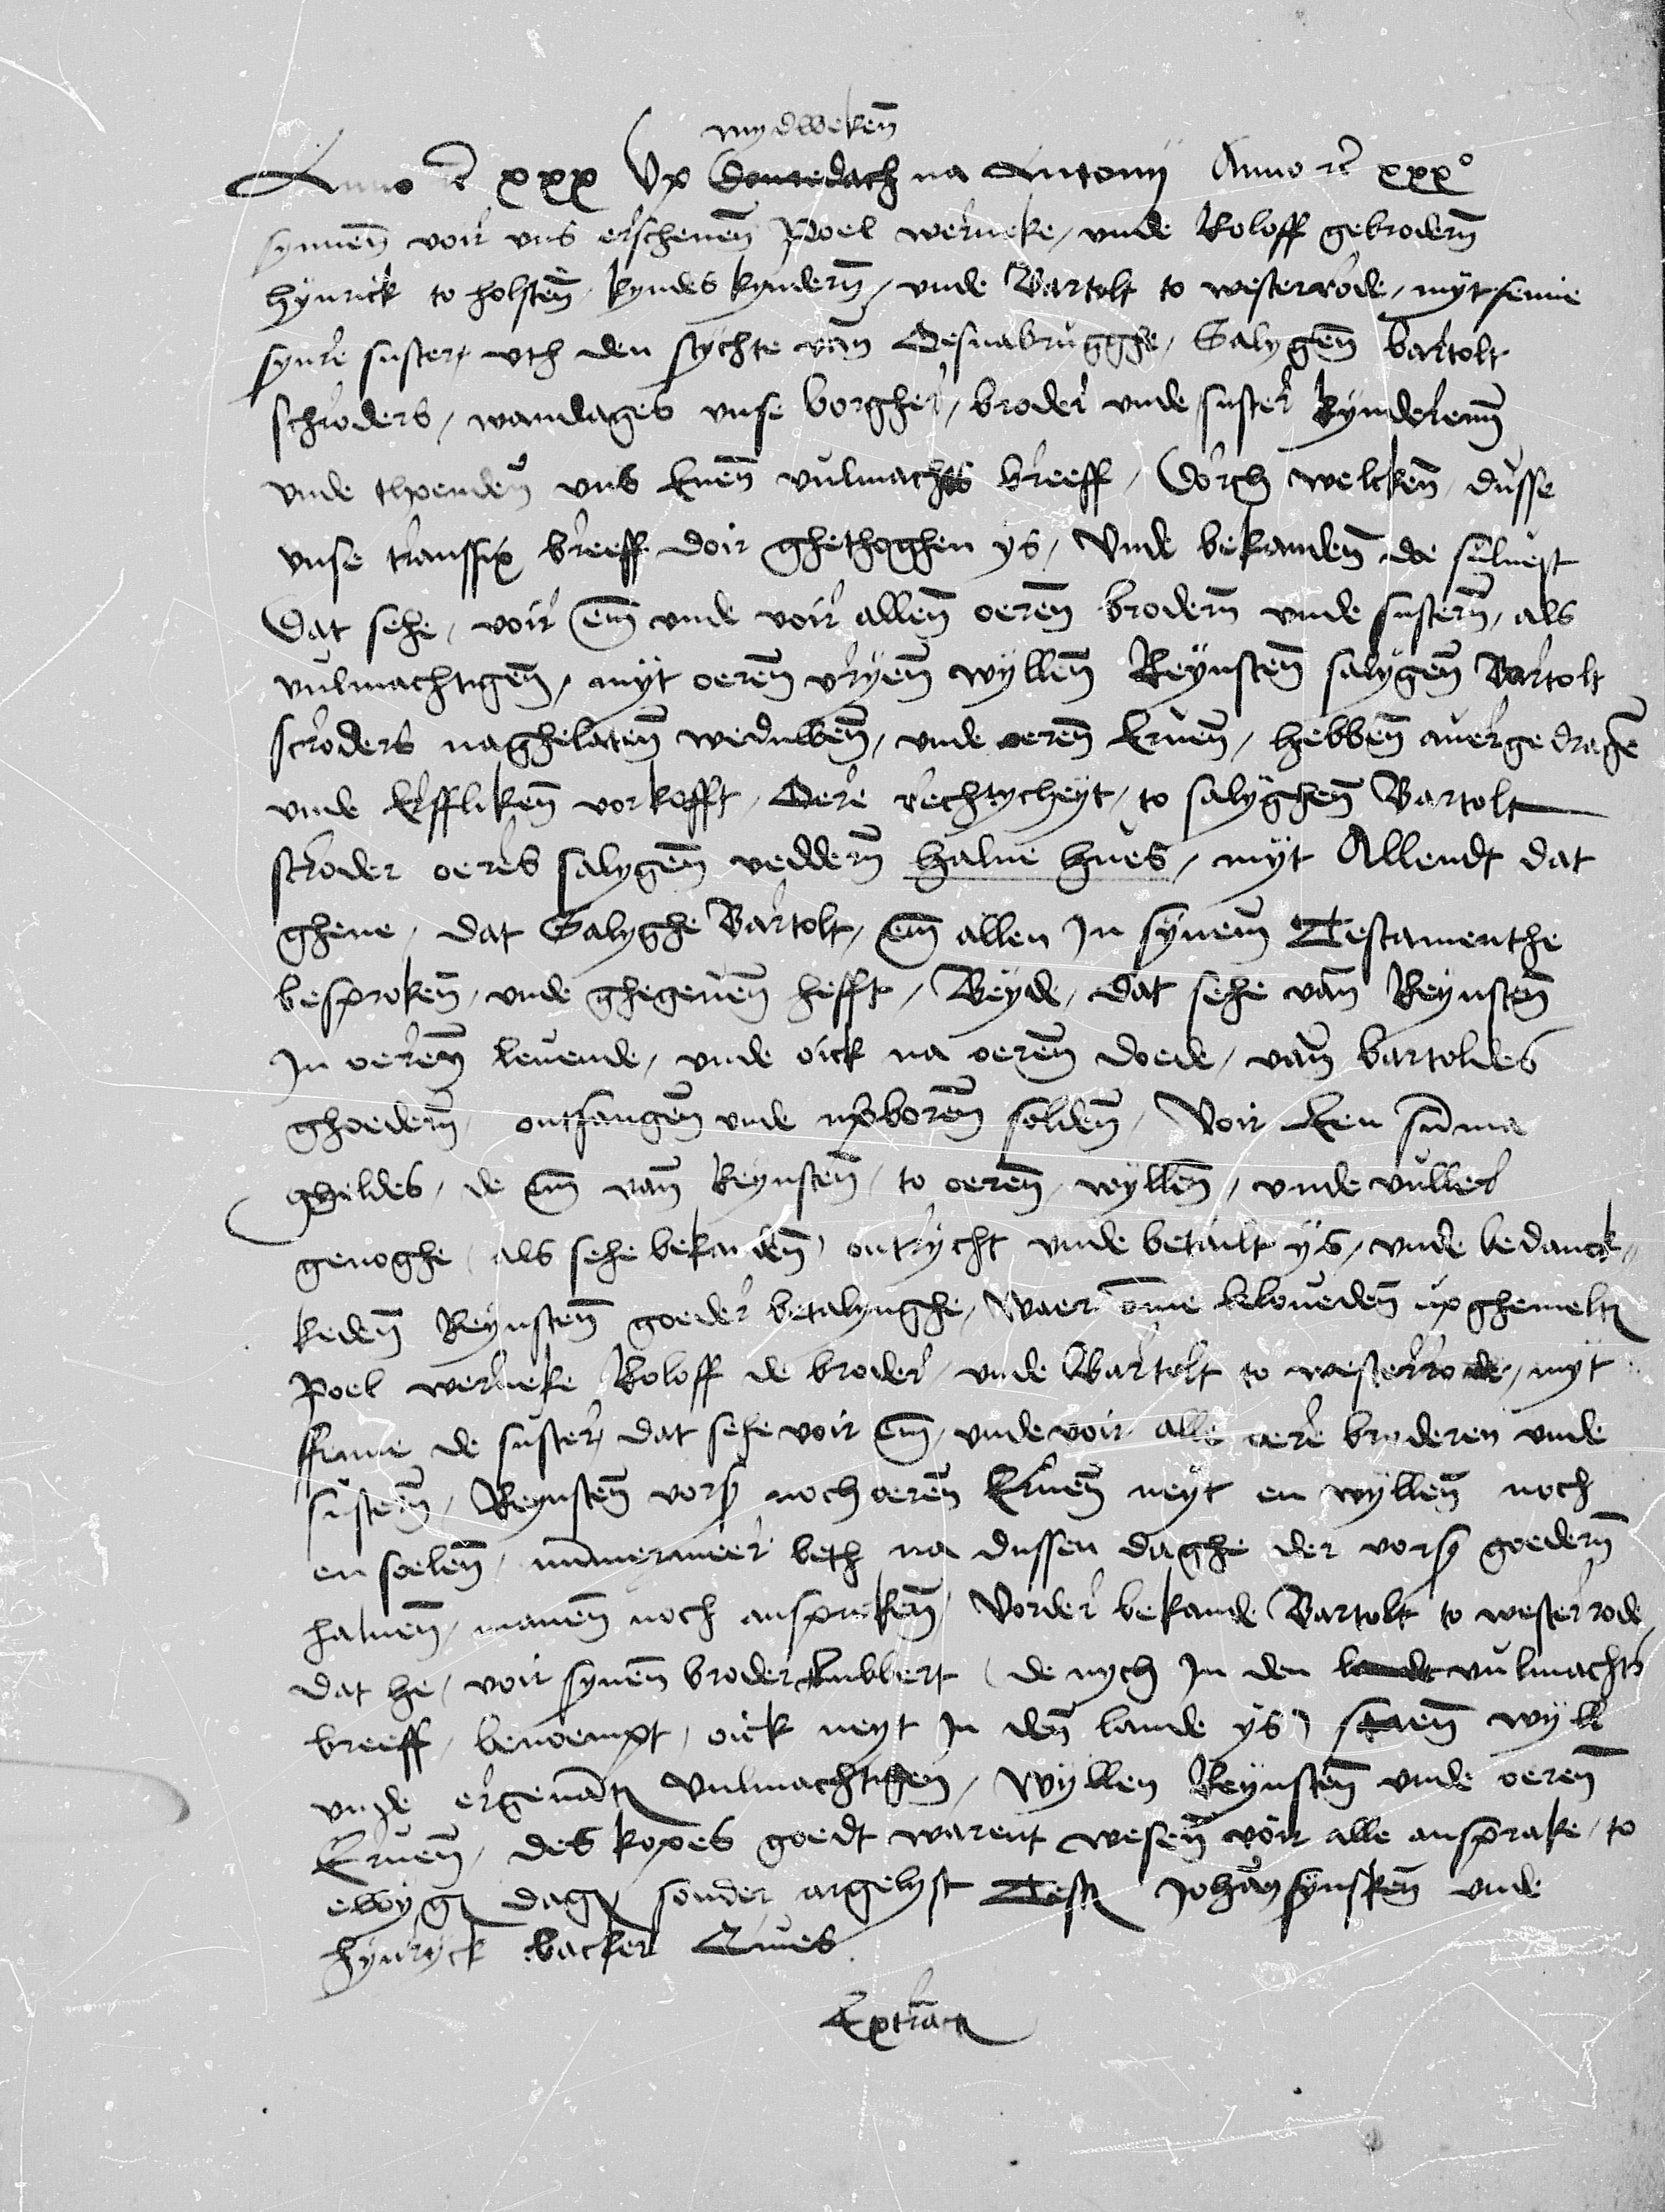 mydweken
Anno rc xxx Vp Sonnedach na Antonij Anno rc xxx°
synnen voir vns erschenen Poel werneke / vnde Roloff gebrodern
hynrick to holsten / kyndes kyndern / vnde Bartolt to westerrode / myt fenne
synre suster / vth den stychte van Oesnabrugghe / Salygen bartolt
schroders / wandages vnse borgher / broder vnde suster kynderenn
vnde thoenden vns Enen vulmachts breeff / Dorch welcken / dusse
vnse transfix breeff doir ghethoghen ys / Vnde bekanden doe suluest
Dat sehe / voir em vnde voir allen oeren brodern vnde sustern / als
vulmachtigen / myt oeren vryen wyllen Reynsten salygen Bartolt
scroders naghelaten weduwen / vnde oeren Eruen / hebben auergedragen
vnde Erffliken vorkofft / Oere rechtycheyt / to salyghen Bartolt
scroder oeres salygen veddern halue hues / myt Allendt dat
ghene / dat Salyghe Bartolt / em allen In synem Testamenthe
besproken / vnde ghegeuen hefft / Beyde / dat sehe van Reynsten
In oeren leuende / vnde oick na oeren doede / van bartoldes
ghoedern / ontfangen vnde vpboren solden / Voir Een summa
gheldes / de em van Reynsten / to oeren wyllen / vnde vuller
genoghe ( als sehe bekanden ) ontrycht vnde betailt ys / vnde bedanck„
keden Reynsten goeder betalynghe / Waer omme beloueden vpghemelt
Poel werneke Roloff de broder / vnde Bartolt to westerrode / myt
ffenne de suster / dat sehe voir em / vnde voir alle oere broderen vnde
sustern / Reynsten vors noch oeren Eruen neyt en wyllen noch
en soelen / nummermeer beth na dussen daghe der vors goedern
haluen / manen noch anspreken / Vorder bekande Bartolt to westerrode
dat he / voir synen broder Lubbert ( de nych In den landt vulmachts
breeff / benoempt / oick neyt In den lande ys ) staen wyll
vnde ergenant Vulmachtigen / Wyllen Reynsten vnde oeren
Eruen / des kopes goedt warent wesen voir alle ansprake / to
ewyg dag sonder argelyst Test Johan synsken vnde
hynryck backer Ciues
Extract